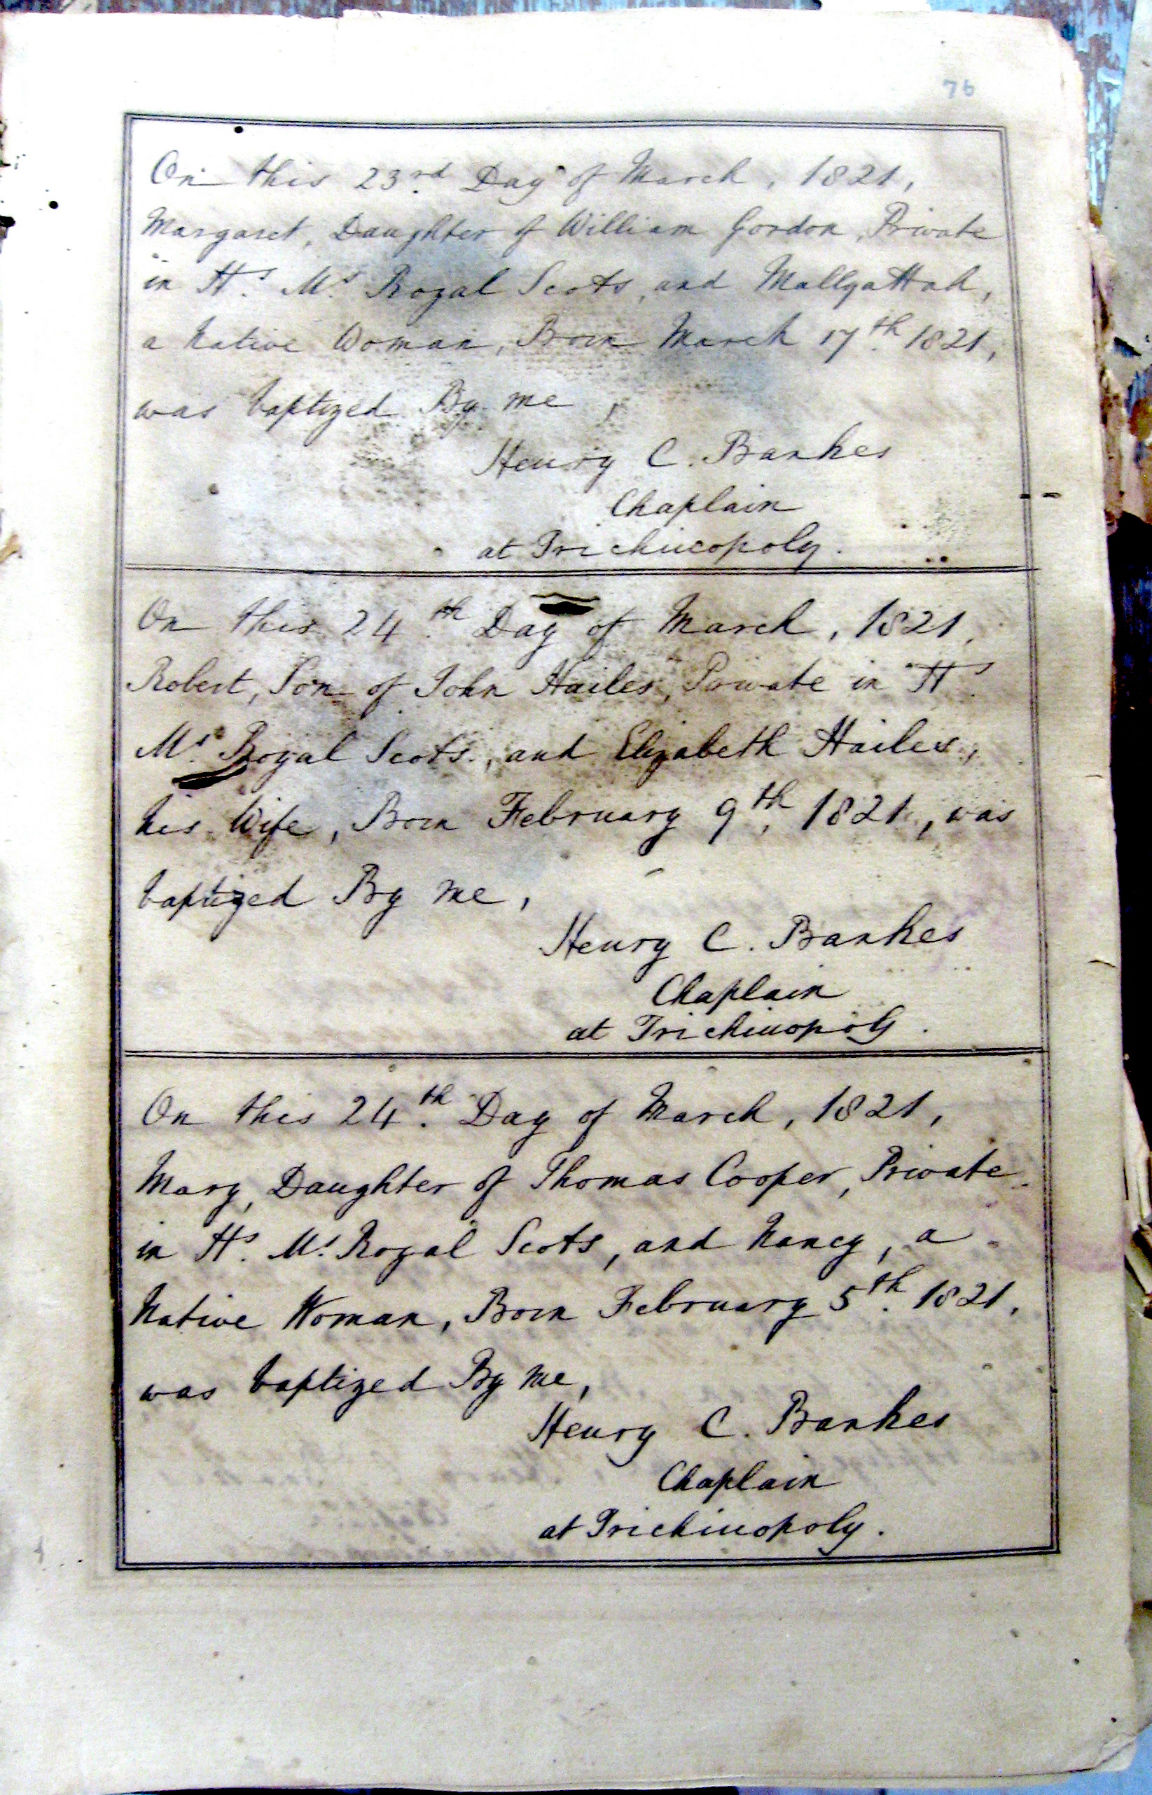 76
On this 23rd Day of March, 1821,
Margaret, Daughter of William Gordon, Private
in H.s M.s Royal Scots, and Mallgattah,
a Native Woman, Born March 17th 1821,
was baptized By me,
Henry C. Bankes
Chaplain
at Trichinopoly.
On this 24th Day of March, 1821,
Robert, Son of John Hailes, Private in H.s
M.s Royal Scots, and Elizabeth Hailes,
his Wife, Born February 9th, 1821, was
baptized By me,
Henry C. Bankes
Chaplain
at Trichinopoly.
On this 24th Day of March, 1821,
Mary, Daughter of Thomas Cooper, Private
in H.s M.s Royal Scots, and Nancy, a
Native Woman, Born February 5th 1821,
was baptized By me,
Henry C. Bankes
Chaplain
at Trichinopoly.